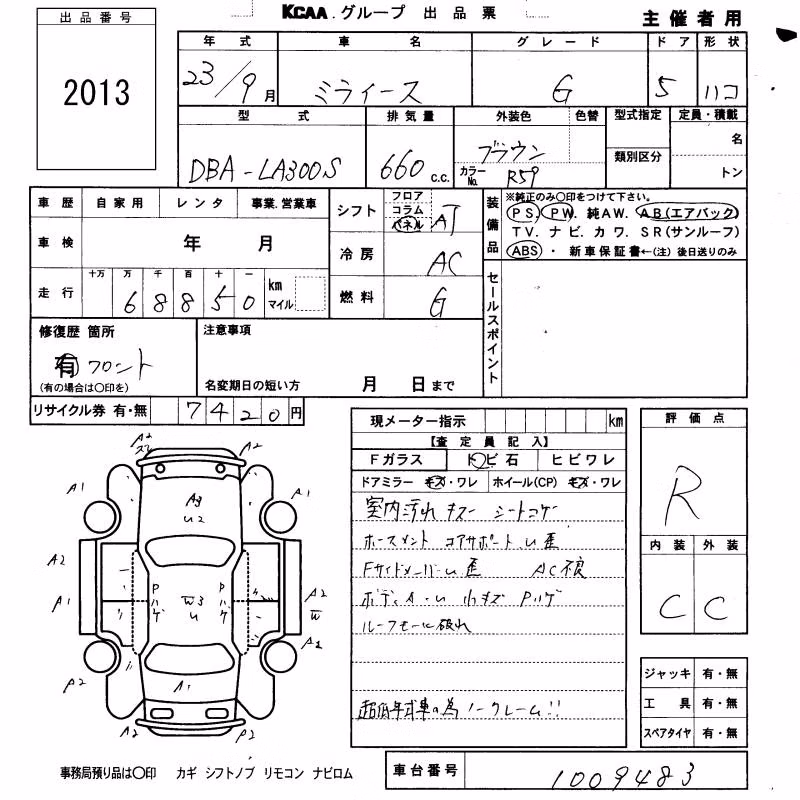 出品番号
2013
KCAA.グループ 出品票
主催者用
年式 車名 グレード ドア 形状
23/9月 ミライース G 5 ハコ
型式 排気量 外装色 色替 型式指定 定員・積載
DBA-LA300S 660 c.c. ブラウン 類別区分 名
カラーNo. R59 トン
車歴 自家用 レンタ 事業.営業車
シフト フロア コラム パネル AT
装備品 ※純正のみ○印をつけて下さい。
PS. PW. 純AW. AB(エアバック)
TV. ナビ. カワ. SR(サンルーフ)
ABS ・ 新車保証書←(注) 後日送りのみ
車検 年 月
冷房 AC
走行 十万 万 千 百 十 一
6 8 8 5 0 km マイル
燃料 G
セールスポイント
修復歴 箇所
有 フロント
(有の場合は○印を)
注意事項
名変期日の短い方 月 日まで
リサイクル券 有・無 7 4 2 0 円
現メーター指示 km
【査定員記入】
Fガラス トビ石 ヒビワレ
ドアミラー キズ・ワレ ホイール(CP) キズ・ワレ
室内汚れ キズー シートコゲ
ホースメント コアサポート.U歪
FサイドメンバーU歪 AC不良
ボディA・U 小キズ Pハゲ
ルーフモール破れ
超低年式車の為ノークレーム!!
評価点
R
内装 外装
C C
ジャッキ 有・無
工具 有・無
スペアタイヤ 有・無
A2 A2
A1 A3 A1
U2
A2 A2
A1 Pハゲ W3 U Pハゲ W
A2 A1 A2
A2 P2
事務局預り品は○印 カギ シフトノブ リモコン ナビロム
車台番号 1009483